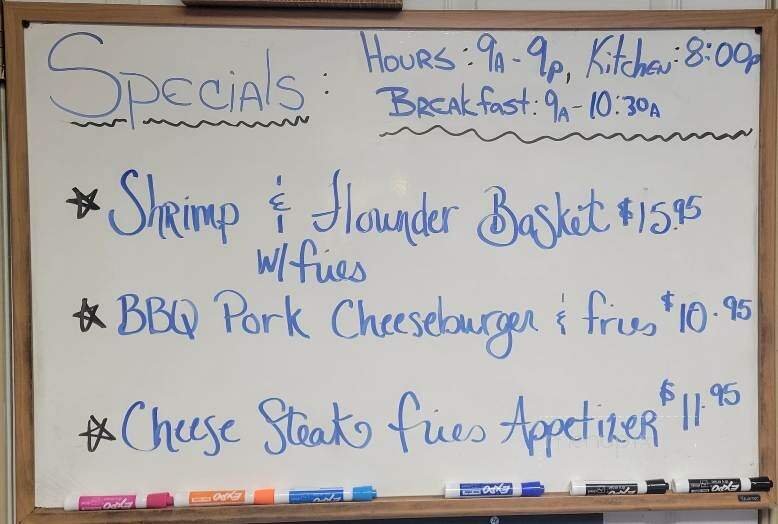 Specials:
Hours: 9A-9p, Kitchen: 8:00p
Breakfast: 9A-10:30A
Shrimp & Flounder Basket $15.95
w/fries
BBQ Pork Cheeseburger & fries $10.95
Cheese Steak fries Appetizer $11.95
EXPO EXPO EXPO EXPO EXPO EXPO